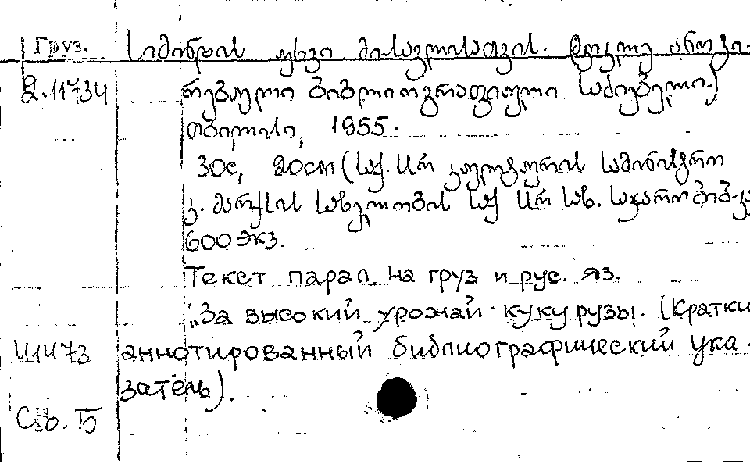 Груз. სიმინდის უხვი მოსავლისათვის. (მოკლე ანოტი-
2.11734 რებული ბიბლიოგრაფიული საძიებელი)
თბილისი, 1955.
30с, 20см (საქ. სსრ კულტურის სამინისტრო
კ. მარქსის სახელობის საქ სსრ სახ. საჯარო ბიბ-კა
600 экз.
Текст парал. на груз и рус. яз.
"За высокий урожай кукурузы. (Кратки
аннотированный библиографический ука-
затель).